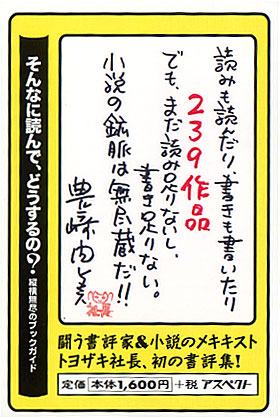 読みも読んだり、書きも書いたり
239作品
でも、まだ読み足りないし、
書き足りない。
小説の鉱脈は無尽蔵だ!!
豊﨑由美
そんなに読んで、どうするの?
縦横無尽のブックガイド
闘う書評家&小説のメキキスト
トヨザキ社長、初の書評集!
定価 本体1,600円 +税 アスペクト